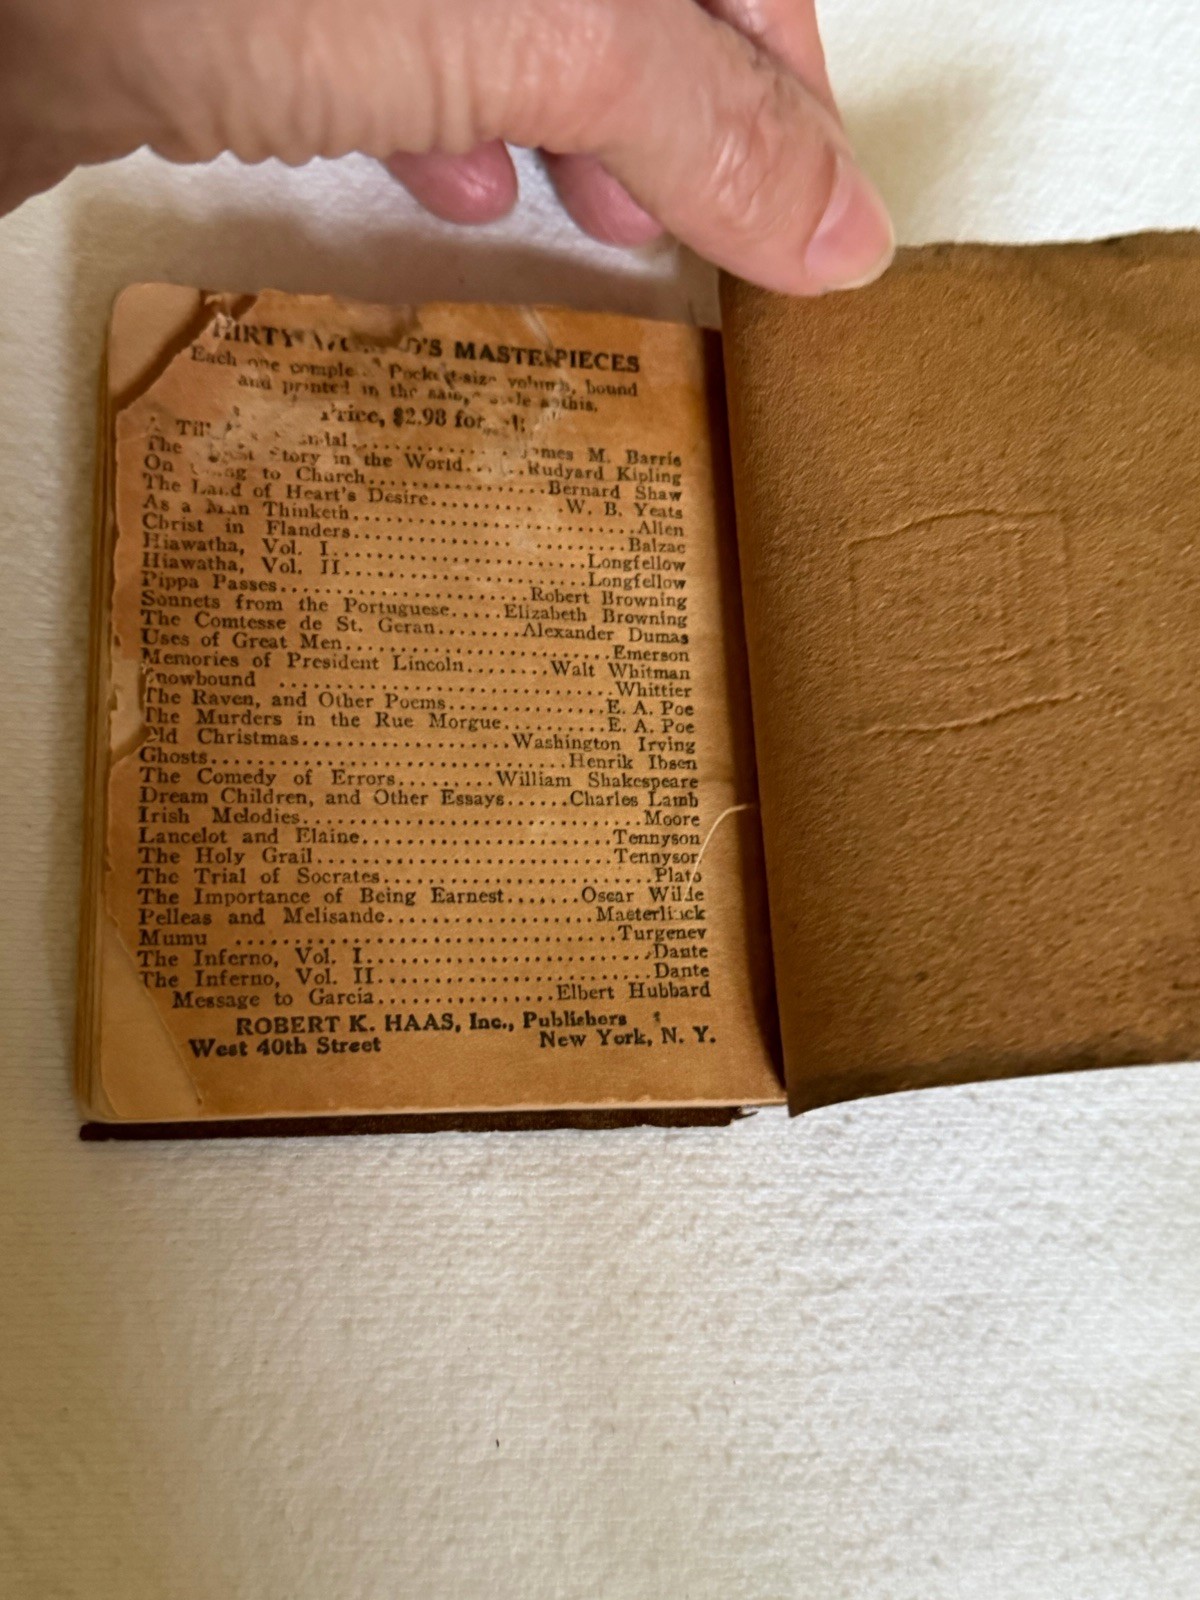 MASTERPIECES
Each one Pocket-size bound
and printed in the
Price, $2.98 for
James M. Barrie
The Story in the World......Rudyard Kipling
On to Church..................Bernard Shaw
The Land of Heart's Desire............W. B. Yeats
As a Man Thinketh..........................Allen
Christ in Flanders..........................Balzac
Hiawatha, Vol. I........................Longfellow
Hiawatha, Vol. II.......................Longfellow
Pippa Passes......................Robert Browning
Sonnets from the Portuguese.....Elizabeth Browning
The Comtesse de St. Geran........Alexander Dumas
Uses of Great Men.........................Emerson
Memories of President Lincoln.......Walt Whitman
Snowbound ..............................Whittier
The Raven, and Other Poems..............E. A. Poe
The Murders in the Rue Morgue........E. A. Poe
Old Christmas...................Washington Irving
Ghosts................................Henrik Ibsen
The Comedy of Errors.........William Shakespeare
Dream Children, and Other Essays......Charles Lamb
Irish Melodies.................................Moore
Lancelot and Elaine......................Tennyson
The Holy Grail...........................Tennyson
The Trial of Socrates........................Plato
The Importance of Being Earnest.......Oscar Wilde
Pelleas and Melisande...................Maeterlinck
Mumu ..................................Turgenev
The Inferno, Vol. I..........................Dante
The Inferno, Vol. II.........................Dante
Message to Garcia...............Elbert Hubbard
ROBERT K. HAAS, Inc., Publishers
West 40th Street New York, N. Y.